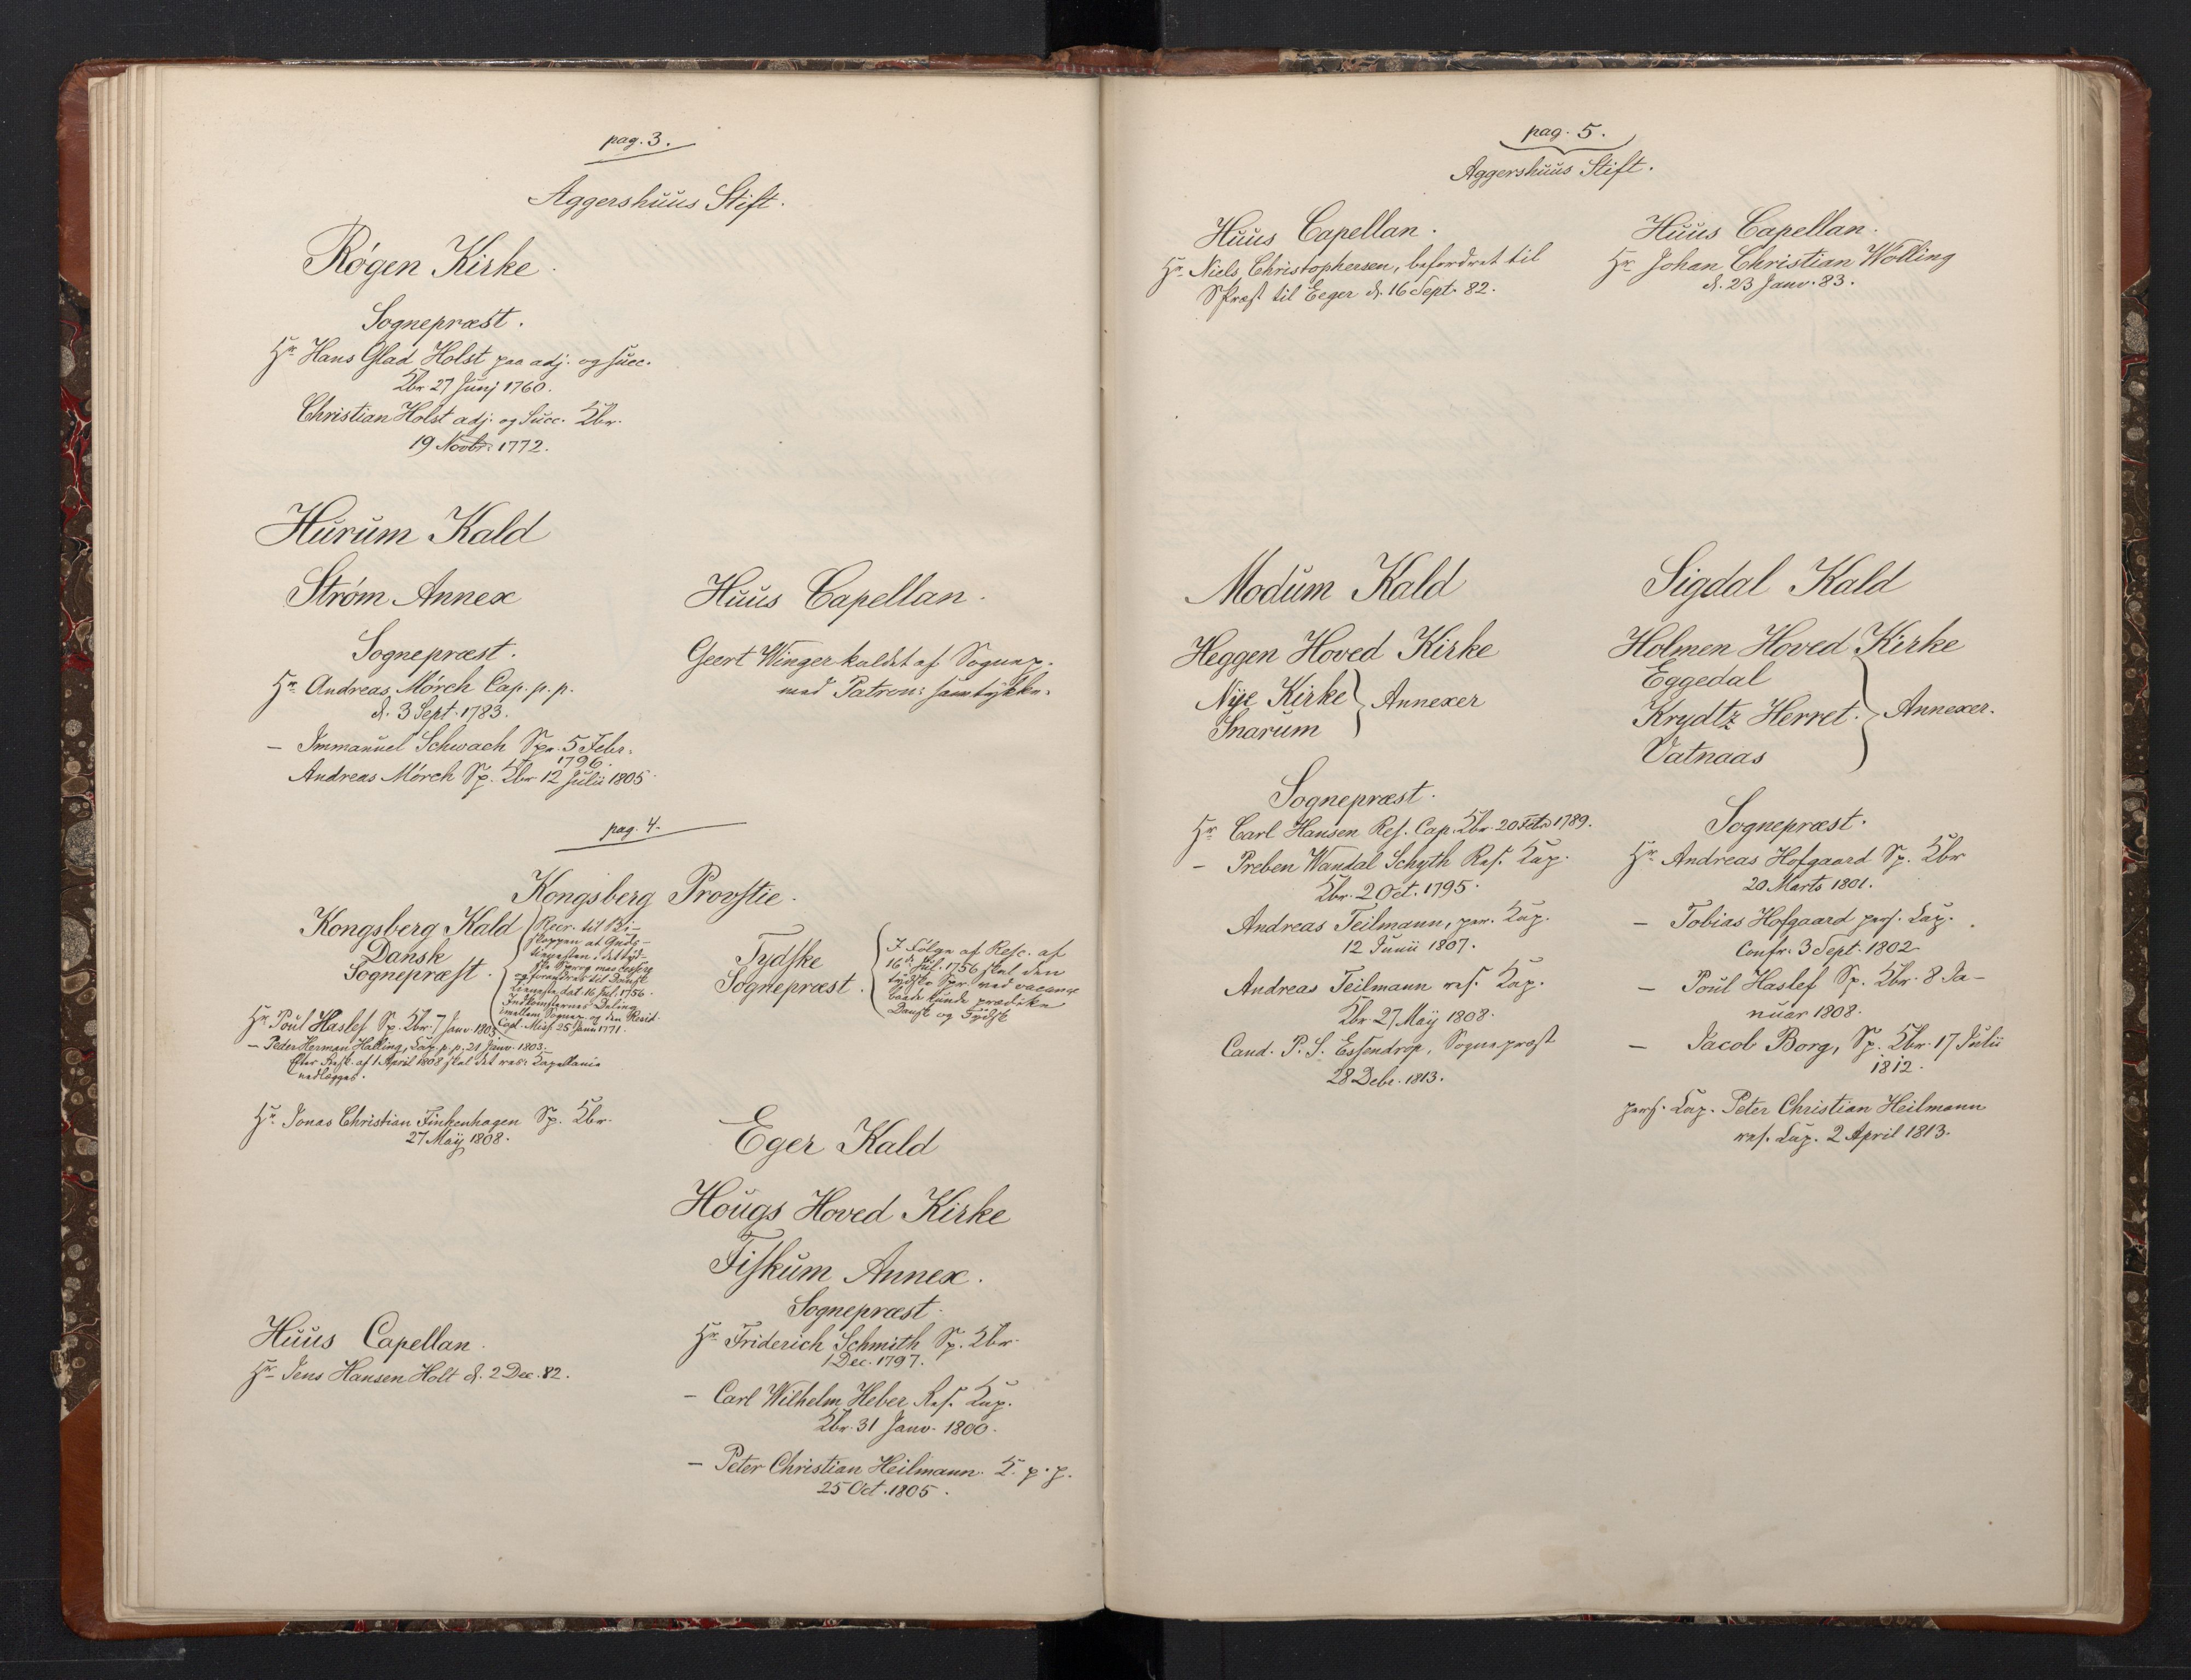 pag. 3.
Aggershuus Stift.
Røgen Kirke.
Sognepræst.
Hr Hans Glad Holst paa adj. og succ.
Kbr 27 Junj 1760.
Christian Holst adj. og Succ. Kbr.
19 Novbr. 1772.
Hurum Kald
Strøm Annex
Sognepræst.
Hr Andreas Mørch Cap. p. p.
d. 3 Sept. 1783.
— Immanuel Schwach Spr. 5 Febr.
1796.
Andreas Mørch Sp. Kbr 12 Julii 1805.
Huus Capellan.
Geert Winger kaldet af Sognep.
med Patron: samtykke.
pag. 4.
Kongsberg Provstie.
Kongsberg Kald
Dansk
Sognepræst.
Rscr. til Bi-
skoppen at Guds-
tienesten i det tyd-
ske Sprog maa
og forandres til Dansk
Tieneste, dat. 16 Jul. 1756.
Indkomsternes Deling
imellem Sognep. og den Resid.
Capl. Miss. 25 Janu 1771.
Hr Poul Haslef Sp. Kbr. 7 Janv. 1803
— Peder Herman Halling, Cap. p. p. 21 Janv. 1803.
Efter Resk. af 1 April 1808 skal det res: Kapellanie
nedlægges.
Hr. Jonas Christian Finkenhagen Sp. Kbr.
27 Maij 1808.
Huus Capellan.
Hr Jens Hansen Holt d. 2 Dec. 82.
Tydske
Sognepræst.
I Følge af Resc. af
16de Jul. 1756 skal den
tydske Spr. ved vacance
baade kunde prædike
Dansk og Tydsk
Eger Kald
Hougs Hoved Kirke
Fiskum Annex.
Sognepræst.
Hr Friderich Schmith Sp. Kbr.
1 Dec. 1797.
— Carl Wilhelm Heber Res. Kap.
Kbr. 31 Janv. 1800.
— Peter Christian Heilmann K. p. p.
25 Oct. 1805.
pag. 5.
Aggershuus Stift.
Huus Capellan.
Hr. Niels Christophersen, befordret til
SPræst til Eeger d. 16 Sept. 82.
Huus Capellan.
Hr Johan Christian Wølling
d. 23 Janv. 83.
Modum Kald
Heggen Hoved Kirke
Nye Kirke
Snarum
Annexer
Sognepræst.
Hr Carl Hansen Res. Cap. Kbr. 20 Feb. 1789.
— Preben Wandal Schyth Res. Kap.
Kbr. 2 Oct. 1795.
Andreas Teilmann, per. Kap.
12 Junii 1807.
Andreas Teilmann res. Kap.
Kbr 27 Maij 1808.
Cand. P. S. Essendrop, Sognepræst
28 Debr. 1813.
Sigdal Kald
Holmen Hoved Kirke
Eggedal
Krydtz Herret.
Vatnaas
Annexer.
Sognepræst.
Hr Andreas Hofgaard Sp. Kbr
20 Marts 1801.
— Tobias Hofgaard pers. Cap.
Confr. 3 Sept. 1802.
— Poul Haslef Sp. Kbr. 8 Ja-
nuar 1808.
— Jacob Borg, Sp. Kbr. 17 Julii
1812.
pers. Cap. Peter Christian Heilmann
res. Cap. 2 April 1813.